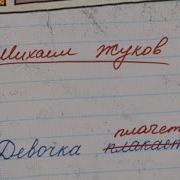 Михаил Жуков
плачет
Девочка плакает